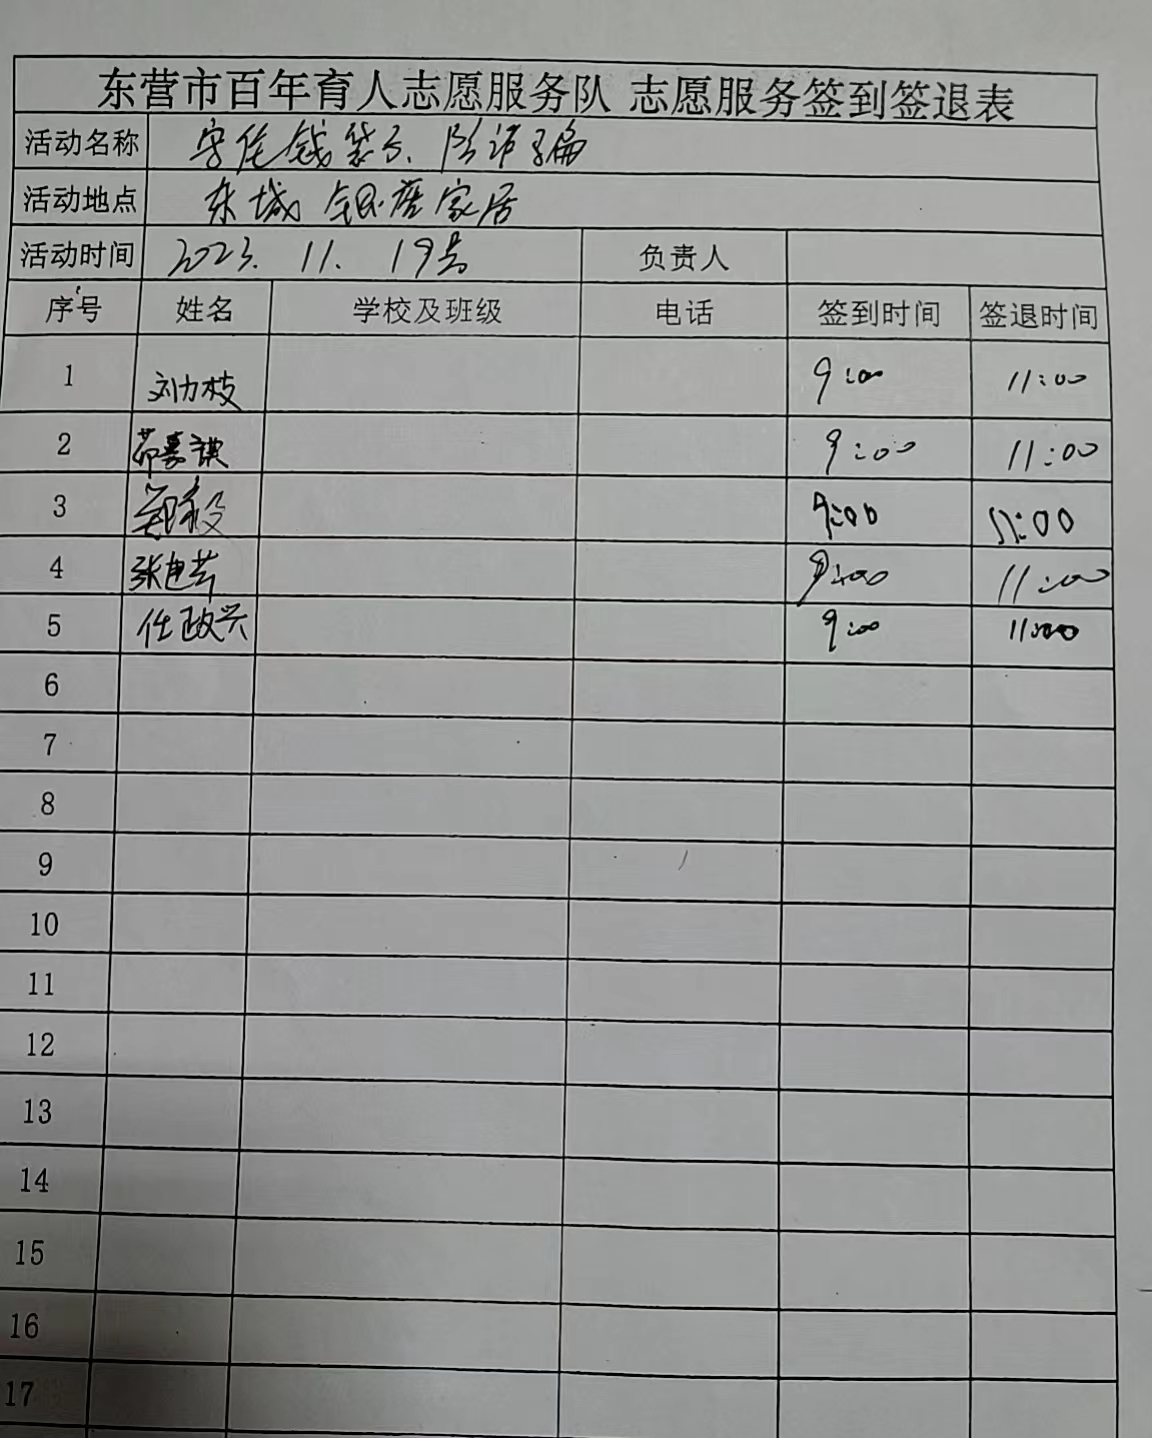 东营市百年育人志愿服务队 志愿服务签到签退表
活动名称 守住钱袋子、防诈骗
活动地点 东城 银座家居
活动时间 2023. 11. 19号 负责人
序号 姓名 学校及班级 电话 签到时间 签退时间
1 刘力枝 9:00 11:00
2 9:00 11:00
3 9:00 11:00
4 9:00 11:00
5 任政兴 9:00 11:00
6
7
8
9
10
11
12
13
14
15
16
17